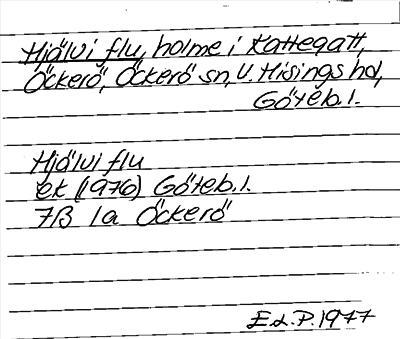 Hjälvi flu, holme i Kattegatt,
Öckerö, Öckerö sn, V. Hisings hd,
Göteb. l.
Hjälvi flu
ek (1976) Göteb. l.
7B 1a Öckerö
E.d.P. 1977